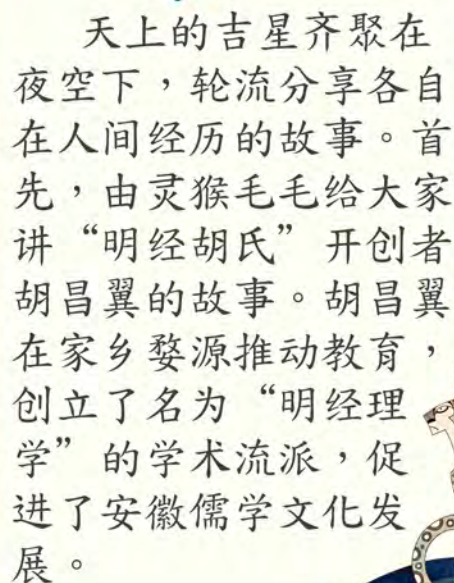 天上的吉星齐聚在
夜空下，轮流分享各自
在人间经历的故事。首
先，由灵猴毛毛给大家
讲“明经胡氏”开创者
胡昌翼的故事。胡昌翼
在家乡婺源推动教育，
创立了名为“明经理
学”的学术流派，促
进了安徽儒学文化发
展。